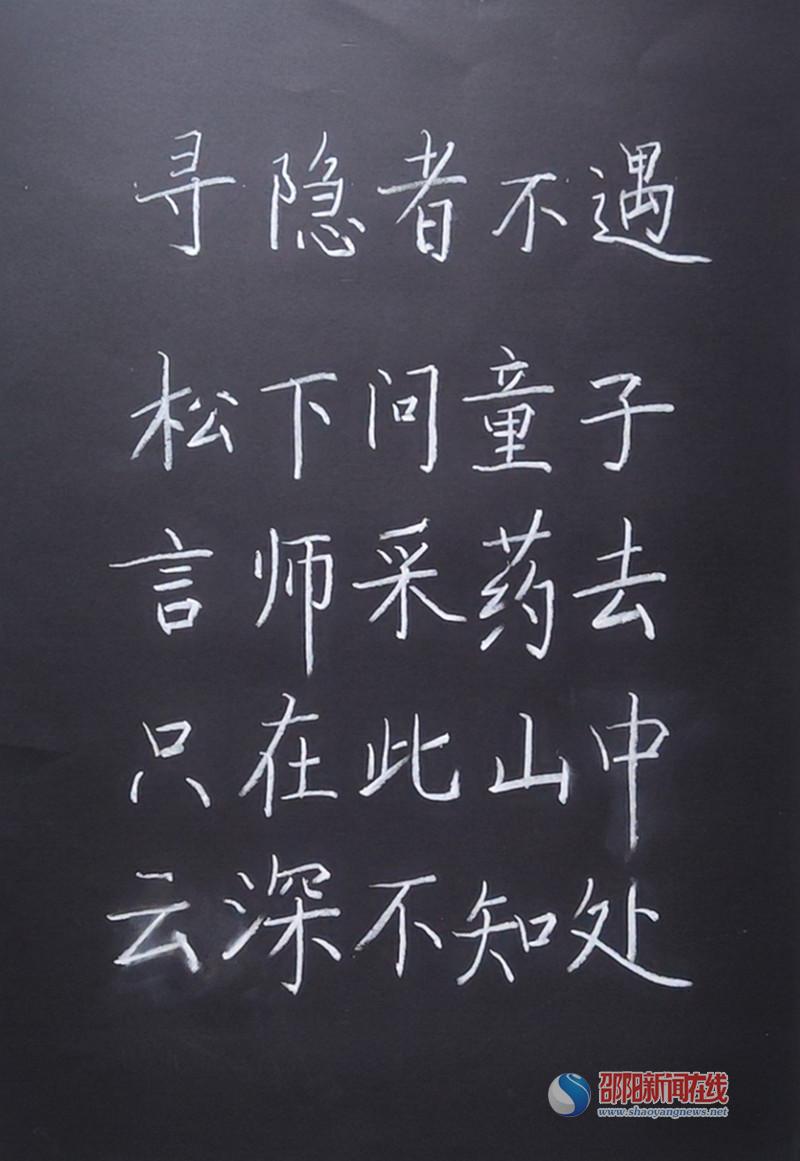 寻隐者不遇
松下问童子
言师采药去
只在此山中
云深不知处
邵阳新闻在线
www.shaoyangnews.net